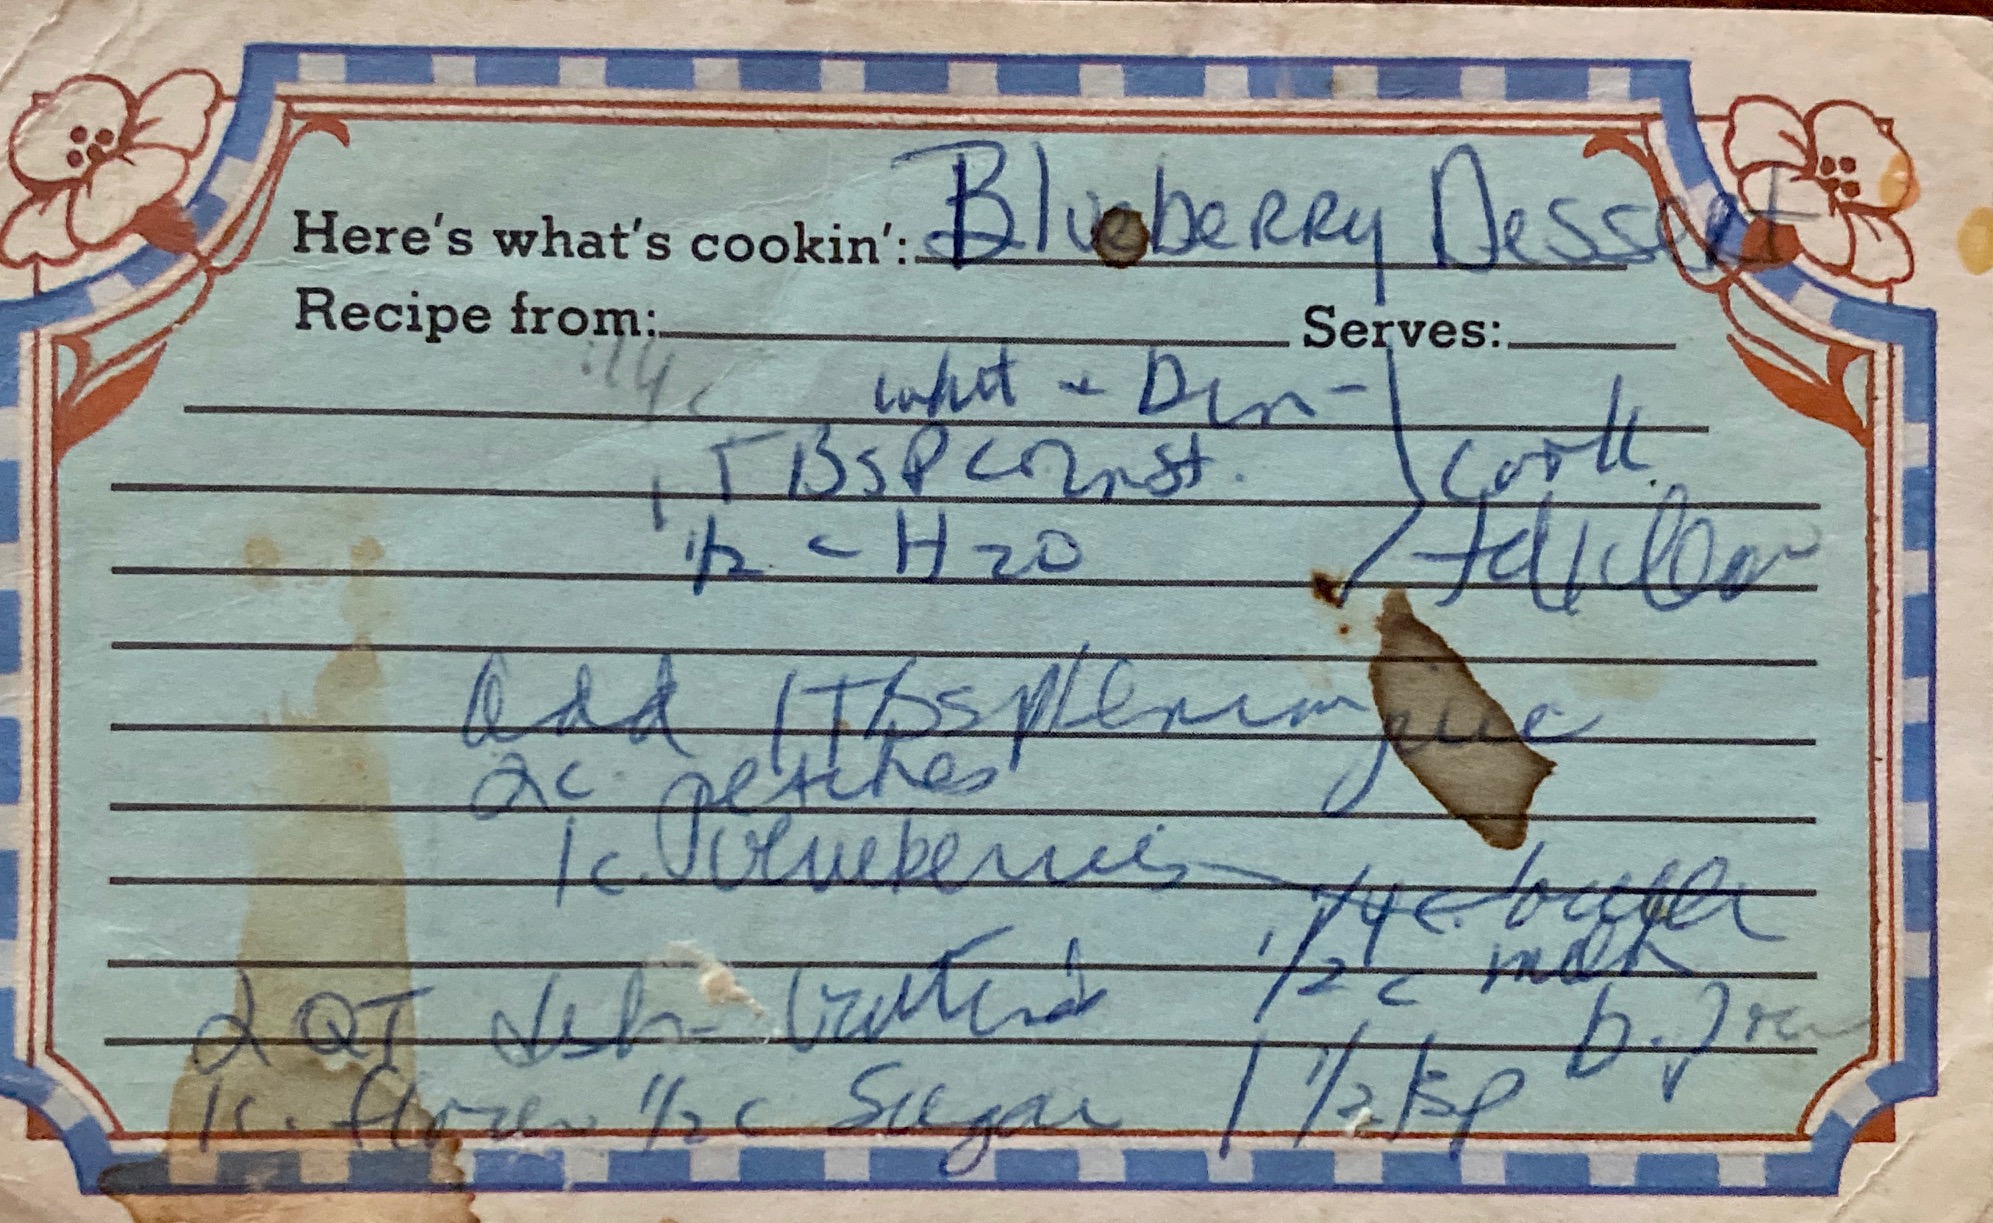 Here's what's cookin': Blueberry Dessert
Recipe from: Serves:
1 TBSP cornst. Cook
1/2 c H2O
add 1 TBsp lemon juice
2c. peaches
1c. blueberries
1/4 c. butter
1/2 c milk
2 QT dish- buttered
1c. flour 1/2 c Sugar 1 1/2 tsp b.